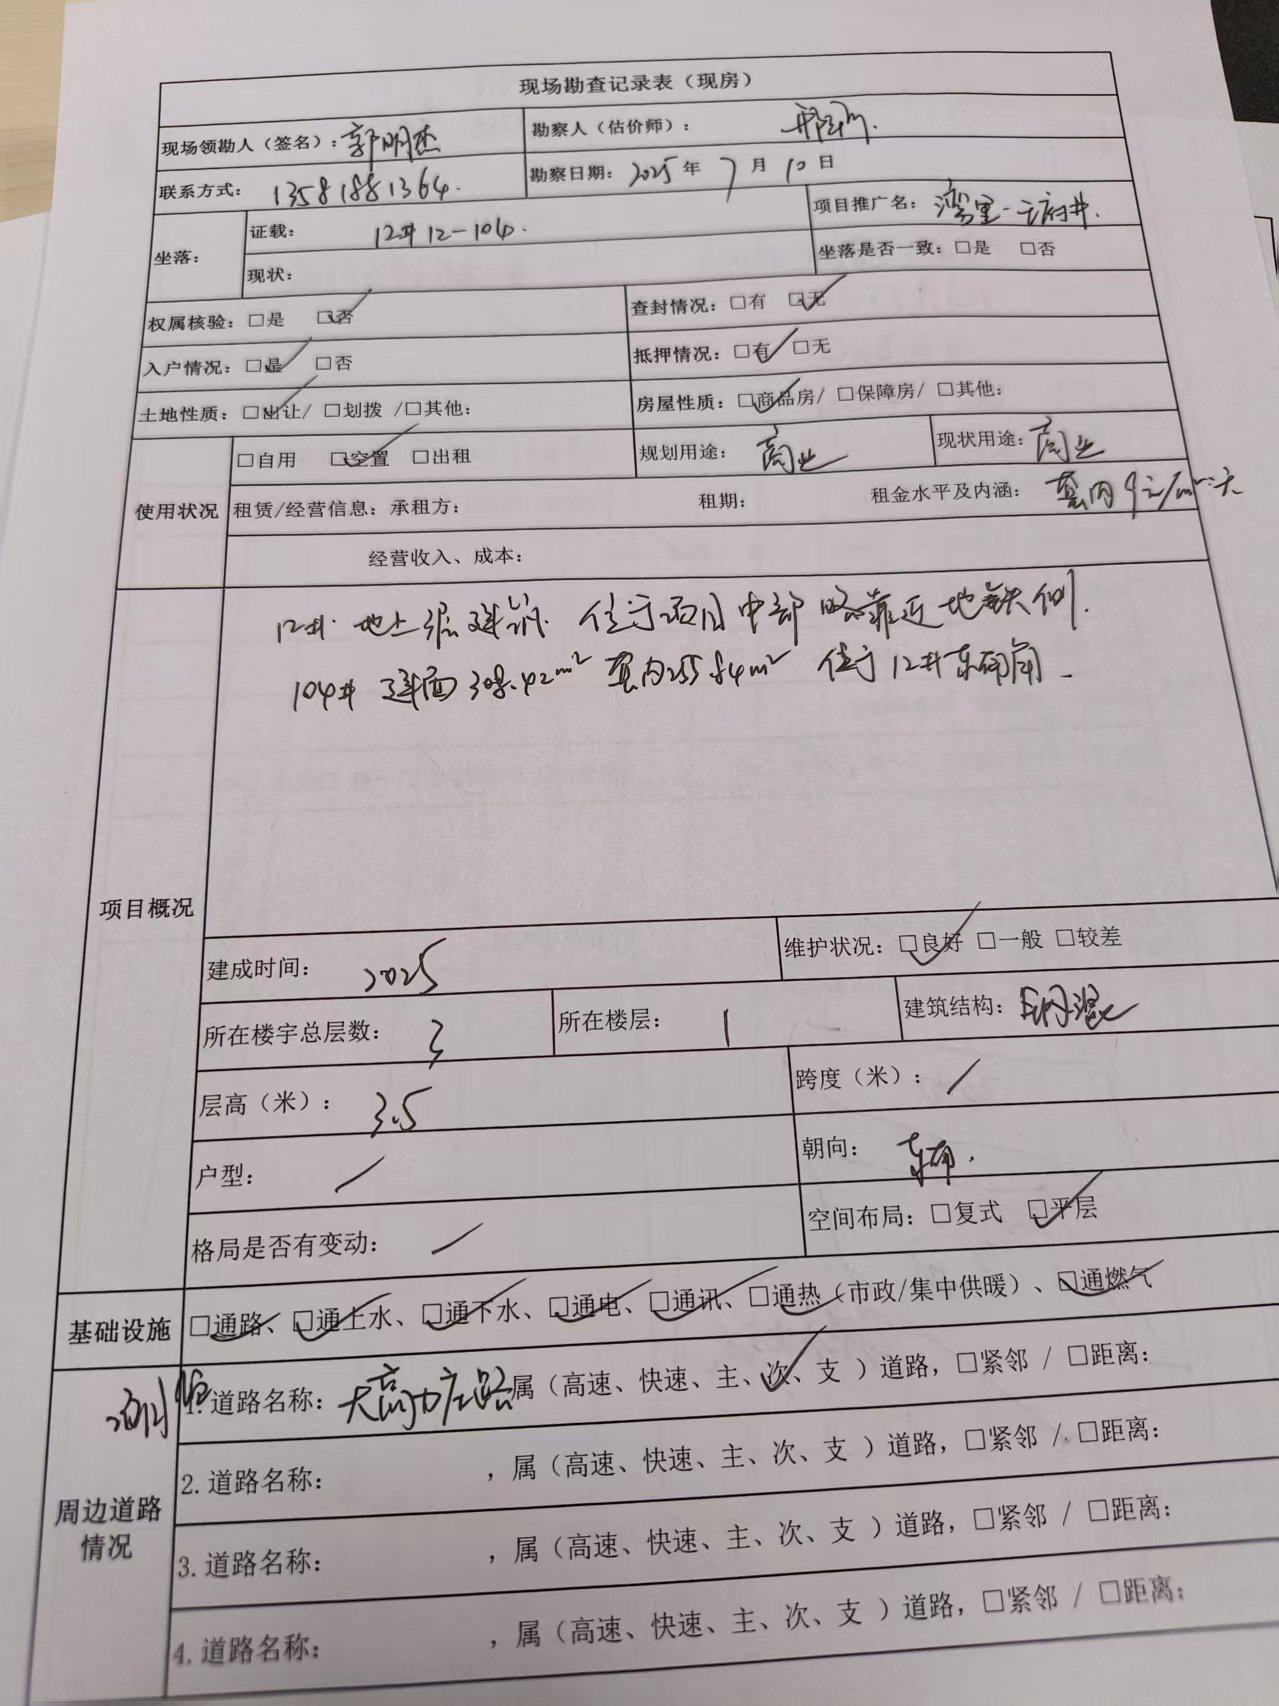 现场勘查记录表（现房）
现场领勘人（签名）：郭明杰 勘察人（估价师）：
联系方式：13581881364. 勘察日期：2025年7月10日
坐落： 证载：12# 12-104. 项目推广名：湾里·云府井.
现状： 坐落是否一致：□是 □否
权属核验：□是 ☑否 查封情况：□有 ☑无
入户情况：☑是 □否 抵押情况：☑有 □无
土地性质：☑出让/ □划拨 /□其他： 房屋性质：☑商品房/ □保障房/ □其他：
使用状况 □自用 ☑空置 □出租 规划用途：商业 现状用途：商业
租赁/经营信息：承租方： 租期： 租金水平及内涵：套内9元/m²·天
经营收入、成本：
12# 地上3层建筑 位于项目中部 略靠近地铁侧.
104# 建面308.42m² 套内255.84m² 位于12#东南角
项目概况
建成时间：2025 维护状况：☑良好 □一般 □较差
所在楼宇总层数：3 所在楼层：1 建筑结构：钢混
层高（米）：3.5 跨度（米）：/
户型：/ 朝向：东南.
格局是否有变动：/ 空间布局：□复式 ☑平层
基础设施 ☑通路、☑通上水、☑通下水、☑通电、☑通讯、☑通热（市政/集中供暖）、☑通燃气
周边道路情况
1.道路名称：大高力庄路 属（高速、快速、主、次✓、支 ）道路，□紧邻 / □距离：
2.道路名称： ，属（高速、快速、主、次、支 ）道路，□紧邻 / □距离：
3.道路名称： ，属（高速、快速、主、次、支 ）道路，□紧邻 / □距离：
4.道路名称： ，属（高速、快速、主、次、支 ）道路，□紧邻 / □距离：